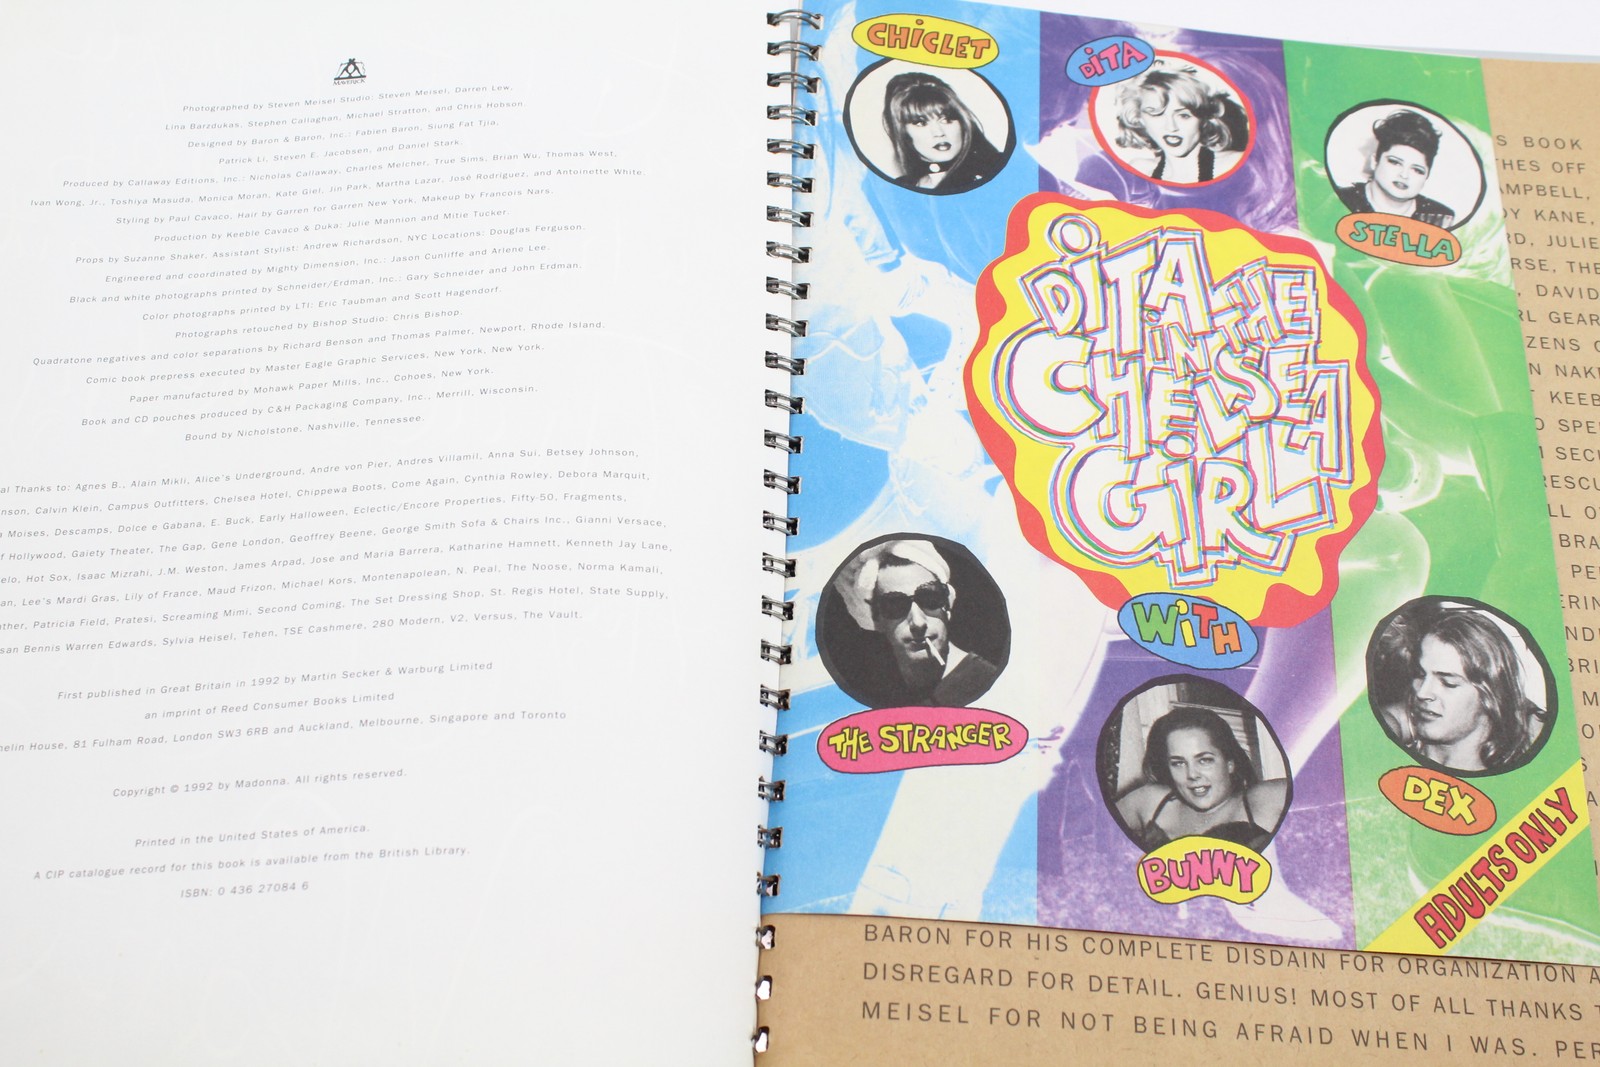 MAVERICK
Photographed by Steven Meisel Studio: Steven Meisel, Darren Lew,
Lina Barzdukas, Stephen Callaghan, Michael Stratton, and Chris Hobson.
Designed by Baron & Baron, Inc.: Fabien Baron, Siung Fat Tjia,
Patrick Li, Steven E. Jacobsen, and Daniel Stark.
Produced by Callaway Editions, Inc.: Nicholas Callaway, Charles Melcher, True Sims, Brian Wu, Thomas West,
Ivan Wong, Jr., Toshiya Masuda, Monica Moran, Kate Giel, Jin Park, Martha Lazar, José Rodríguez, and Antoinette White.
Styling by Paul Cavaco, Hair by Garren for Garren New York, Makeup by Francois Nars.
Production by Keeble Cavaco & Duka: Julie Mannion and Mitie Tucker.
Props by Suzanne Shaker, Assistant Stylist: Andrew Richardson, NYC Locations: Douglas Ferguson.
Engineered and coordinated by Mighty Dimension, Inc.: Jason Cunliffe and Arlene Lee.
Black and white photographs printed by Schneider/Erdman, Inc.: Gary Schneider and John Erdman.
Color photographs printed by LTI: Eric Taubman and Scott Hagendorf.
Photographs retouched by Bishop Studio: Chris Bishop.
Quadratone negatives and color separations by Richard Benson and Thomas Palmer, Newport, Rhode Island.
Comic book prepress executed by Master Eagle Graphic Services, New York, New York.
Paper manufactured by Mohawk Paper Mills, Inc., Cohoes, New York.
Book and CD pouches produced by C&H Packaging Company, Inc., Merrill, Wisconsin.
Bound by Nicholstone, Nashville, Tennessee.
al Thanks to: Agnes B., Alain Mikli, Alice's Underground, Andre von Pier, Andres Villamil, Anna Sui, Betsey Johnson,
nson, Calvin Klein, Campus Outfitters, Chelsea Hotel, Chippewa Boots, Come Again, Cynthia Rowley, Debora Marquit,
a Moises, Descamps, Dolce e Gabana, E. Buck, Early Halloween, Eclectic/Encore Properties, Fifty-50, Fragments,
f Hollywood, Gaiety Theater, The Gap, Gene London, Geoffrey Beene, George Smith Sofa & Chairs Inc., Gianni Versace,
elo, Hot Sox, Isaac Mizrahi, J.M. Weston, James Arpad, Jose and Maria Barrera, Katharine Hamnett, Kenneth Jay Lane,
an, Lee's Mardi Gras, Lily of France, Maud Frizon, Michael Kors, Montenapolean, N. Peal, The Noose, Norma Kamali,
ther, Patricia Field, Pratesi, Screaming Mimi, Second Coming, The Set Dressing Shop, St. Regis Hotel, State Supply,
san Bennis Warren Edwards, Sylvia Heisel, Tehen, TSE Cashmere, 280 Modern, V2, Versus, The Vault.
First published in Great Britain in 1992 by Martin Secker & Warburg Limited
an imprint of Reed Consumer Books Limited
helin House, 81 Fulham Road, London SW3 6RB and Auckland, Melbourne, Singapore and Toronto
Copyright © 1992 by Madonna. All rights reserved.
Printed in the United States of America.
A CIP catalogue record for this book is available from the British Library.
ISBN: 0 436 27084 6
CHICLET
DITA
STELLA
DITA IN THE
CHELSEA
GIRL
WITH
THE STRANGER
BUNNY
DEX
ADULTS ONLY
S BOOK
THES OFF
AMPBELL,
DY KANE,
RD, JULIE
RSE, THE
, DAVID
RL GEAR
ZENS O
N NAK
KEEB
O SPE
SEC
RESCU
LL O
BRA
PE
ERIN
ND
BRI
M
BARON FOR HIS COMPLETE DISDAIN FOR ORGANIZATION A
DISREGARD FOR DETAIL. GENIUS! MOST OF ALL THANKS T
MEISEL FOR NOT BEING AFRAID WHEN I WAS. PER